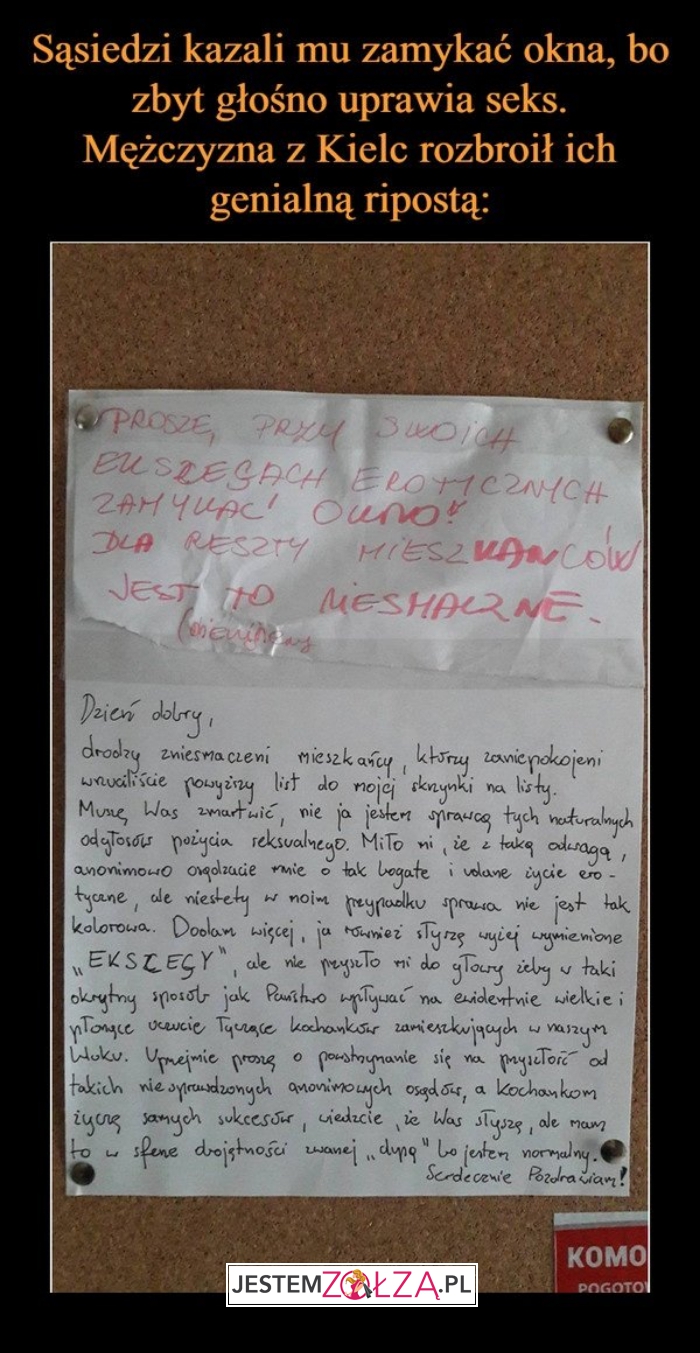 Sąsiedzi kazali mu zamykać okna, bo
zbyt głośno uprawia seks.
Mężczyzna z Kielc rozbroił ich
genialną ripostą:
PROSZĘ, PRZY SWOICH
EKSCESACH EROTYCZNYCH
ZAMYKAĆ OKNO!
DLA RESZTY MIESZKAŃCÓW
JEST TO NIESMACZNE.
Dzień dobry,
drodzy zniesmaczeni mieszkańcy, którzy zaniepokojeni
wrzuciliście powyższy list do mojej skrzynki na listy.
Muszę Was zmartwić, nie ja jestem sprawcą tych naturalnych
odgłosów pożycia seksualnego. Miło mi, że z taką odwagą,
anonimowo osądzacie mnie o tak bogate i udane życie ero-
tyczne, ale niestety w moim przypadku sprawa nie jest tak
kolorowa. Dodam więcej, ja również słyszę wyżej wymienione
„EKSCESY", ale nie przyszło mi do głowy żeby w taki
okrutny sposób jak Państwo wpływać na ewidentnie wielkie i
płonące uczucie łączące kochanków zamieszkujących w naszym
bloku. Uprzejmie proszę o powstrzymanie się na przyszłość od
takich niesprawdzonych anonimowych osądów, a kochankom
życzę samych sukcesów, wiedzcie, że Was słyszę, ale mam
to w sferze obojętności zwanej „dupą" bo jestem normalny.
Serdecznie Pozdrawiam!
KOMO
POGOTO
JESTEMZOŁZĄ.PL